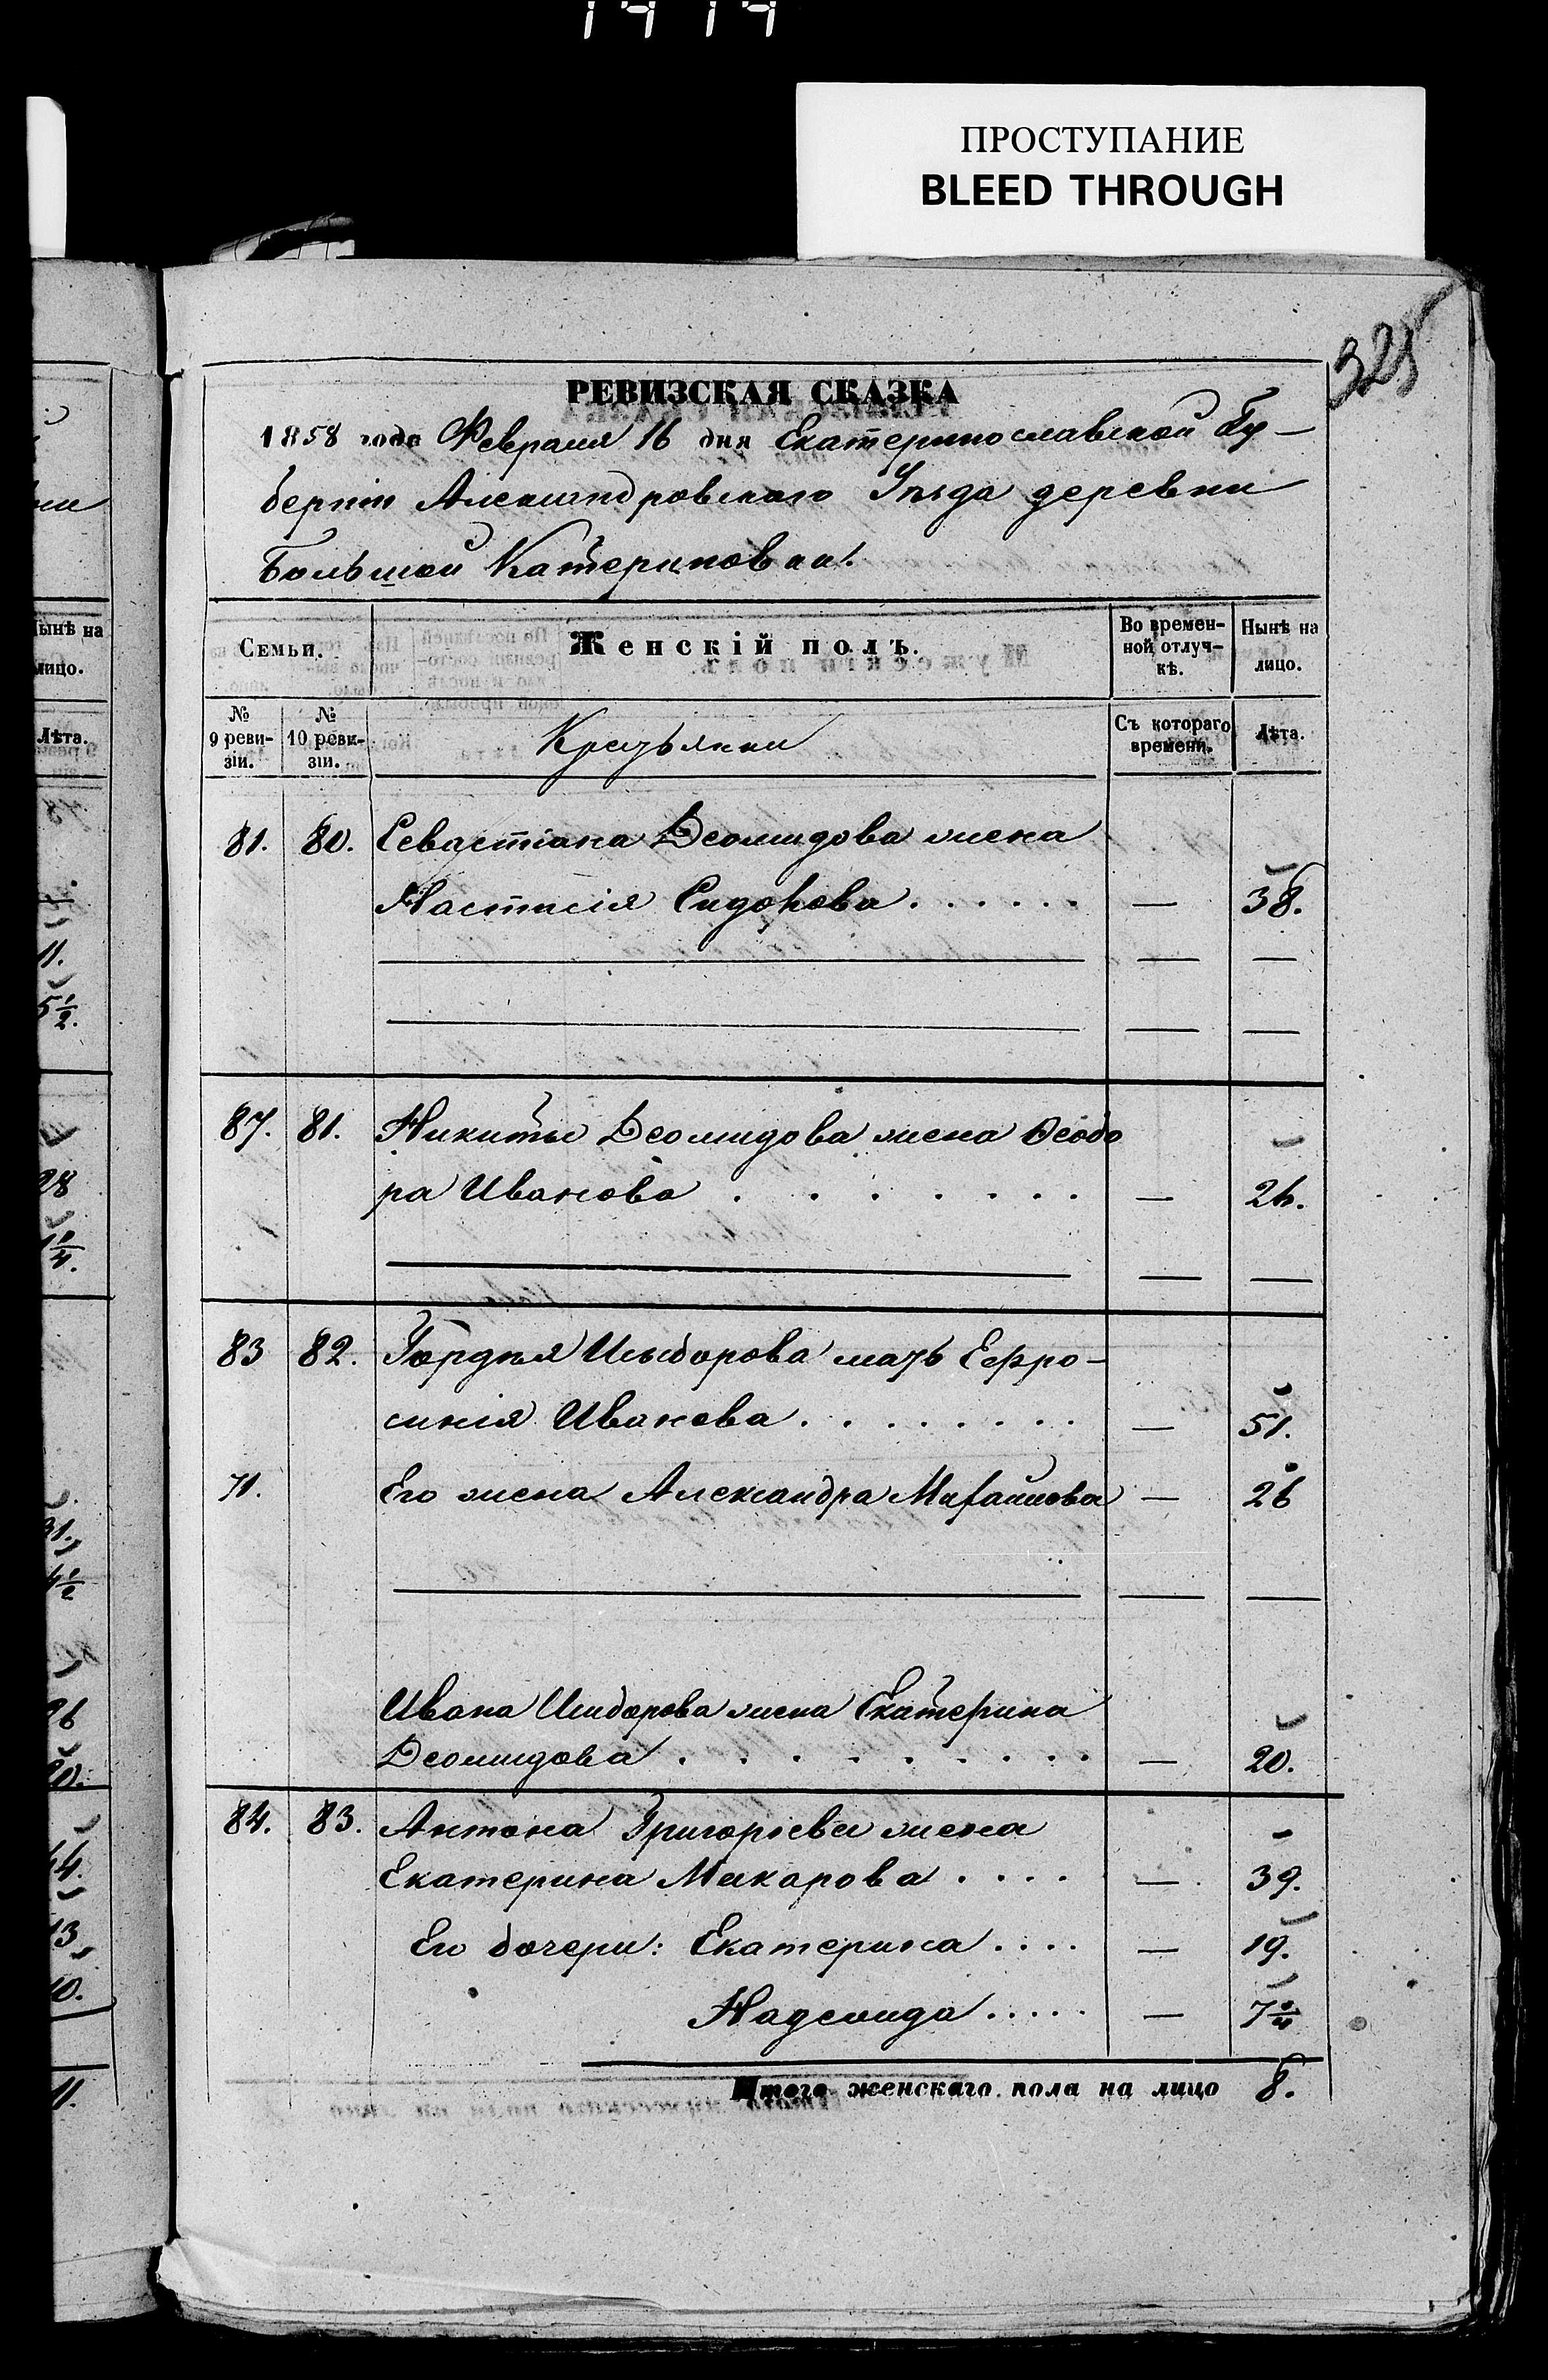 ПРОСТУПАНИЕ
BLEED THROUGH
325
РЕВИЗСКАЯ СКАЗКА
1858 года Февраля 16 дня Екатеринославской Гу-
берніи Александровскаго Уѣзда деревни
Большой Катериновки.
Семьи. Женскій полъ. Во времен-ной отлуч-кѣ. Нынѣ на лицо.
№ 9 реви-зіи. № 10 реви-зіи. Крестьянки Съ котораго времени. Лѣта.
81. 80. Севастіана Деомидова жена
Настасія Сидорова . . . . . . — 38.
87. 81. Никиты Деомидова жена Ѳеодо
ра Иванова . . . . . . . — 26.
83 82. Гордѣя Исидорова мать Ефро-
синія Иванова . . . . . . . . — 51.
71. Его жена Александра Михайлова — 26
Ивана Исидорова жена Екатерина
Деомидова . . . . . . . . — 20.
84. 83. Антона Григорьева жена
Екатерина Макарова . . . . — 39.
Его дочери: Екатерина . . . . — 19.
Надежида . . . . . — 7
Итого женскаго пола на лицо 8.